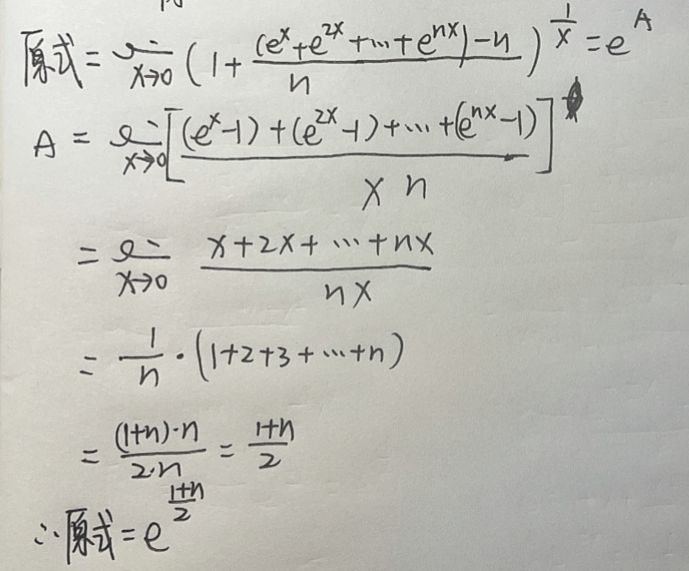 原式 = lim x→0 (1 + (e^x + e^2x + ... + e^nx) - n / n)^(1/x) = e^A
A = lim x→0 [(e^x - 1) + (e^2x - 1) + ... + (e^nx - 1) / x n]
= lim x→0 x + 2x + ... + nx / nx
= 1/n · (1 + 2 + 3 + ... + n)
= (1+n)·n / 2·n = 1+n / 2
∴ 原式 = e^(1+n / 2)